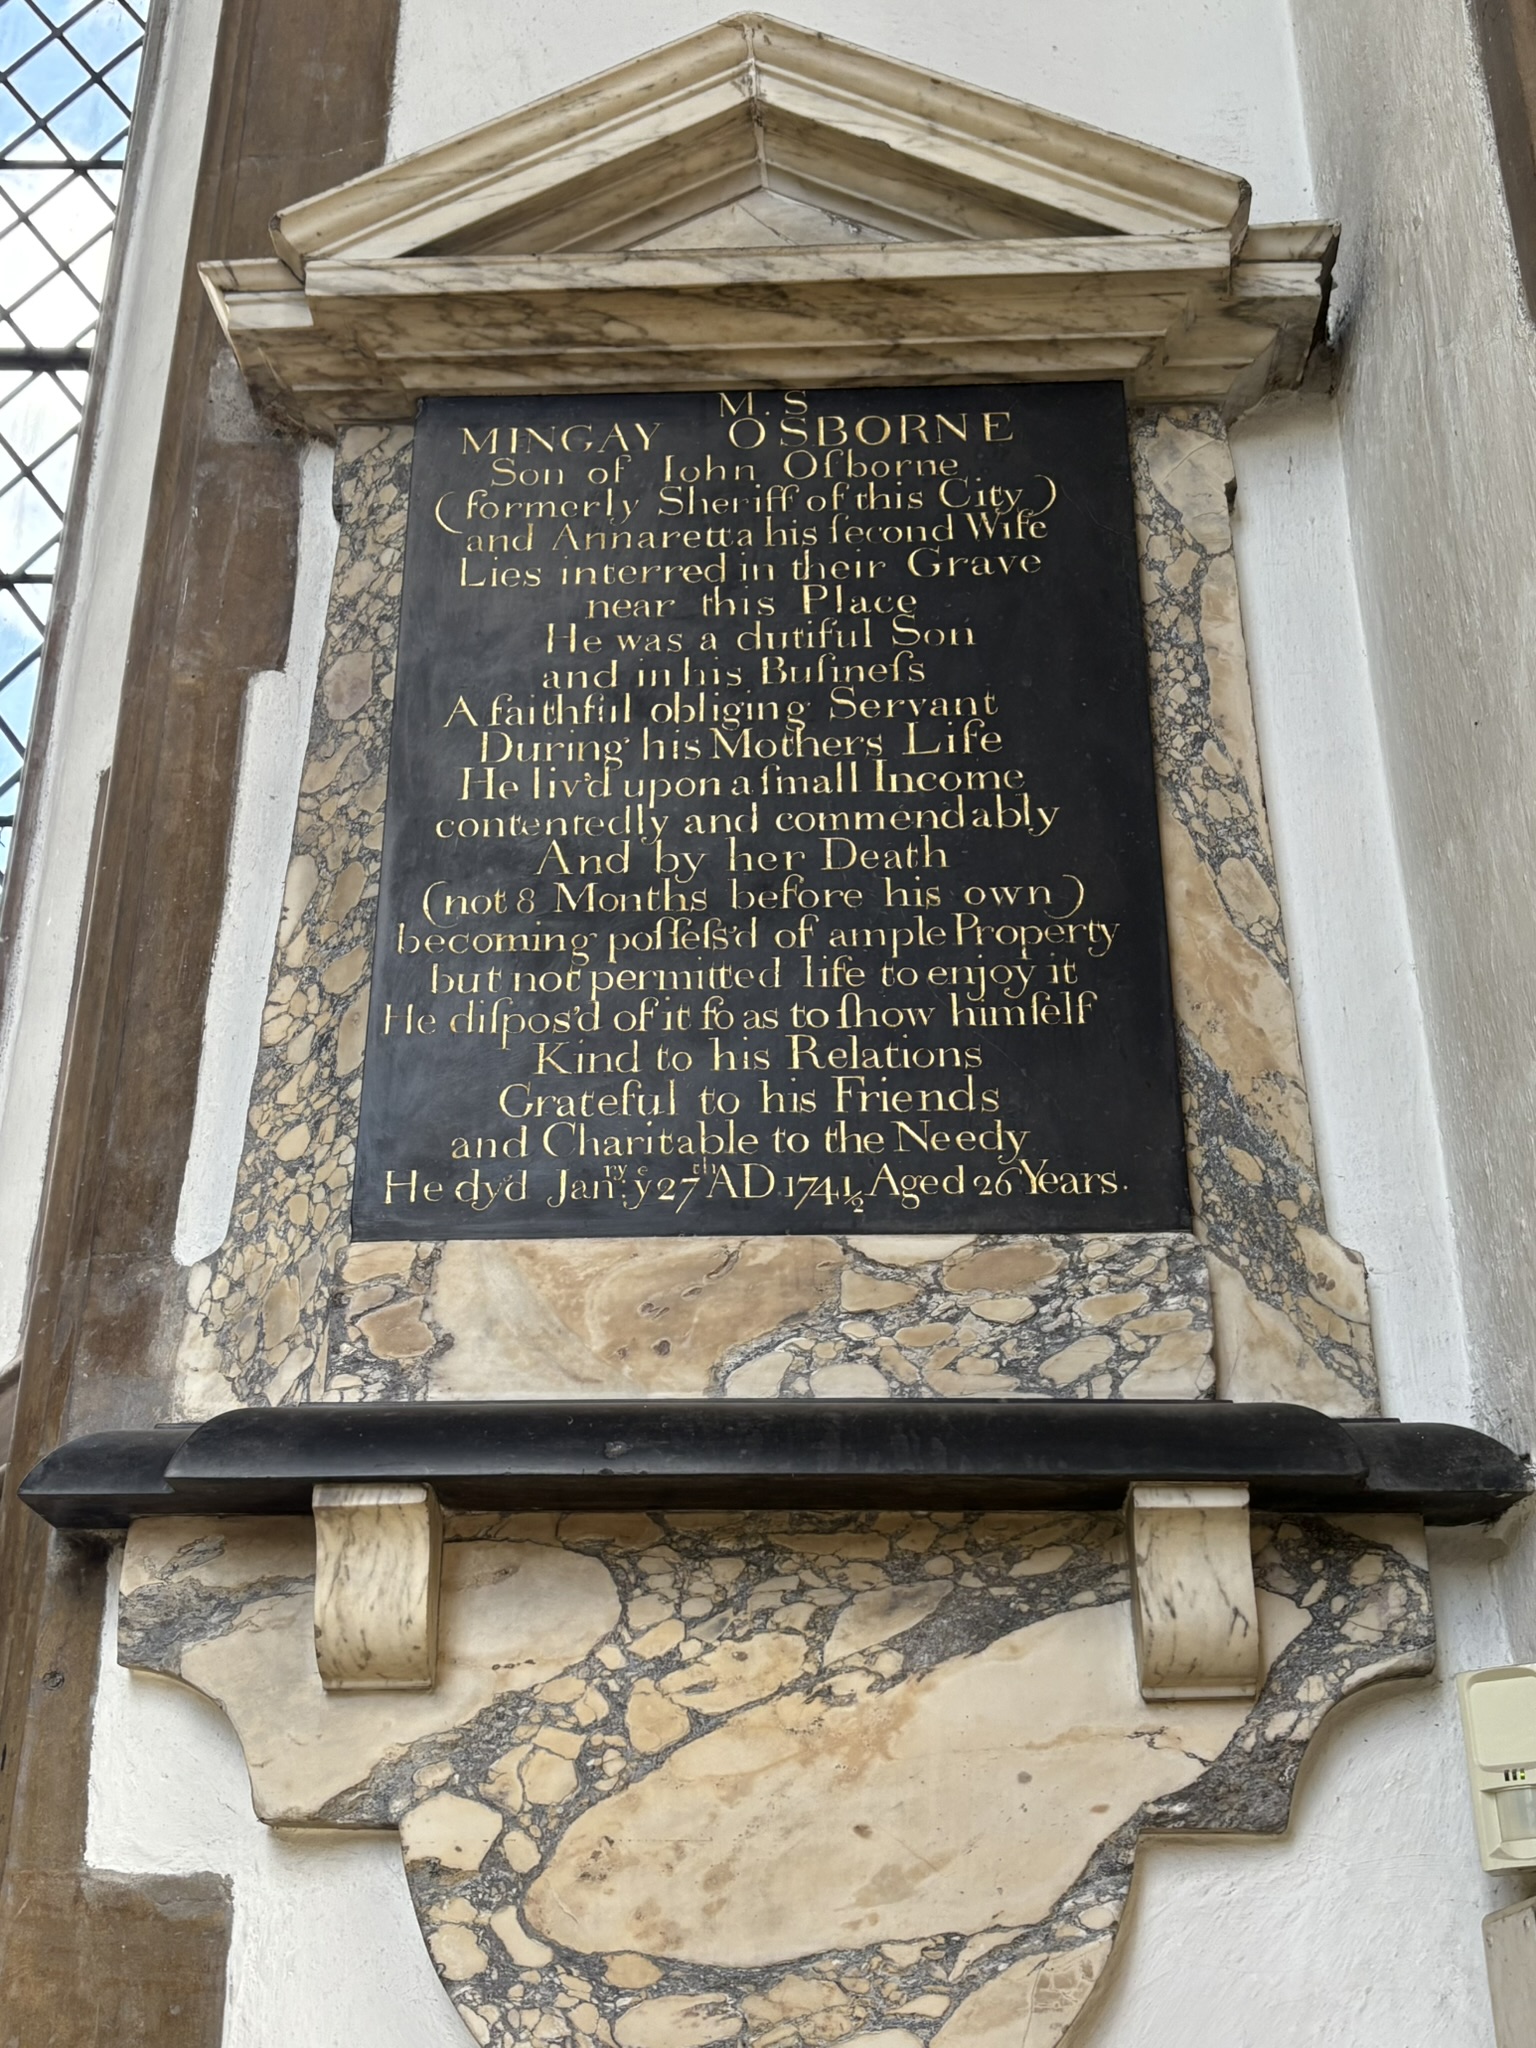 M. S
MINGAY OSBORNE
Son of Iohn Oſborne
(formerly Sheriff of this City)
and Annaretta his ſecond Wife
Lies interred in their Grave
near this Place
He was a dutiful Son
and in his Buſineſs
A faithful obliging Servant
During his Mothers Life
He liv'd upon a ſmall Income
contentedly and commendably
And by her Death
(not 8 Months before his own)
becoming poſſeſs'd of ample Property
but not permitted life to enjoy it
He diſpos'd of it ſo as to ſhow himſelf
Kind to his Relations
Grateful to his Friends
and Charitable to the Needy
He dy'd Jan:ry ye 27th AD 1741/2 Aged 26 Years.